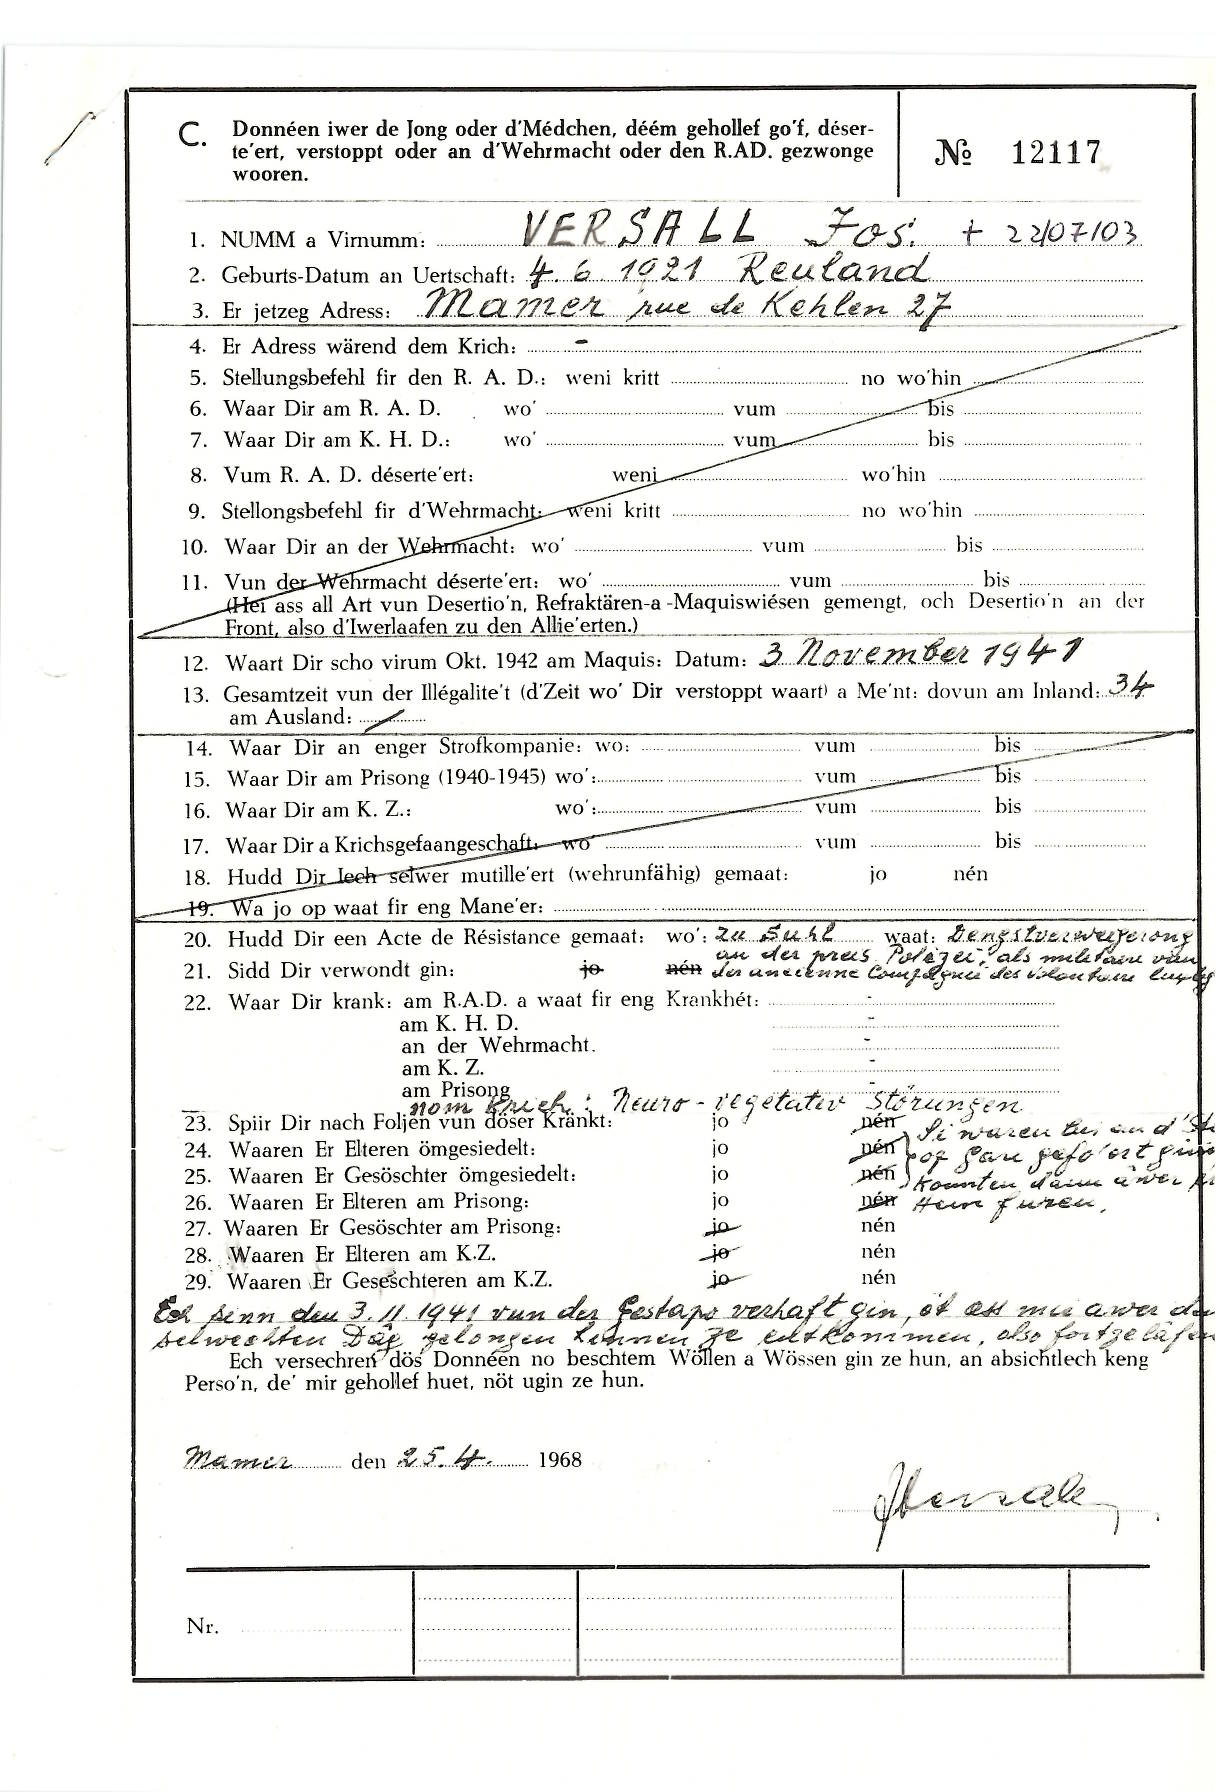 C. Donnéen iwer de Jong oder d'Médchen, déém gehollef go'f, déser-
te'ert, verstoppt oder an d'Wehrmacht oder den R.AD. gezwonge
wooren.
№ 12117
1. NUMM a Virnumm: VERSALL Jos. + 22/07/03
2. Geburts-Datum an Uertschaft: 4. 6. 1921 Reuland
3. Er jetzeg Adress: Mamer rue de Kehlen 27
4. Er Adress wärend dem Krich: -
5. Stellungsbefehl fir den R. A. D.: weni kritt no wo'hin
6. Waar Dir am R. A. D. wo' vum bis
7. Waar Dir am K. H. D.: wo' vum bis
8. Vum R. A. D. déserte'ert: weni wo'hin
9. Stellongsbefehl fir d'Wehrmacht: weni kritt no wo'hin
10. Waar Dir an der Wehrmacht: wo' vum bis
11. Vun der Wehrmacht déserte'ert: wo' vum bis
(Hei ass all Art vun Desertio'n, Refraktären-a -Maquiswiésen gemengt, och Desertio'n an der
Front, also d'Iwerlaafen zu den Allie'erten.)
12. Waart Dir scho virum Okt. 1942 am Maquis: Datum: 3 November 1941
13. Gesamtzeit vun der Illégalite't (d'Zeit wo' Dir verstoppt waart) a Me'nt: dovun am Inland: 34
am Ausland: /
14. Waar Dir an enger Strofkompanie: wo: vum bis
15. Waar Dir am Prisong (1940-1945) wo': vum bis
16. Waar Dir am K. Z.: wo': vum bis
17. Waar Dir a Krichsgefaangeschaft: wo' vum bis
18. Hudd Dir Iech selwer mutille'ert (wehrunfähig) gemaat: jo nén
19. Wa jo op waat fir eng Mane'er:
20. Hudd Dir een Acte de Résistance gemaat: wo': zu Suhl waat: Dengstverweigerong
an der preis. Polizei, als militaire vun
21. Sidd Dir verwondt gin: jo nén der ancienne Compagnie des volontaire
22. Waar Dir krank: am R.A.D. a waat fir eng Krankhét: -
am K. H. D. -
an der Wehrmacht. -
am K. Z. -
am Prisong -
nom Krich: Neuro-vegetativ Störungen
23. Spiir Dir nach Foljen vun döser Kränkt: jo nén
24. Waaren Er Elteren ömgesiedelt: jo nén Si waren an d'
25. Waaren Er Gesöschter ömgesiedelt: jo nén op Gare gefo'ert gin
26. Waaren Er Elteren am Prisong: jo nén konnten dann awer
27. Waaren Er Gesöschter am Prisong: jo nén Hem furen.
28. Waaren Er Elteren am K.Z. jo nén
29. Waaren Er Geseschteren am K.Z. jo nén
Ech sinn den 3.11.1941 vun der Gestapo verhaft gin, öt ass mir awer
selwechten Dag gelongen kënnen ze entkommen, also fortgelafen
Ech versechren dös Donnéen no beschtem Wöllen a Wössen gin ze hun, an absichtlech keng
Perso'n, de' mir gehollef huet, nöt ugin ze hun.
Mamer den 25.4. 1968
Nr.